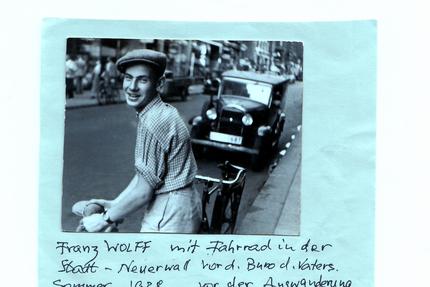 Franz WOLFF mit Fahrrad in der
Stadt - Neuerwall vor d. Büro d. Vaters.
Sommer vor der Auswanderung